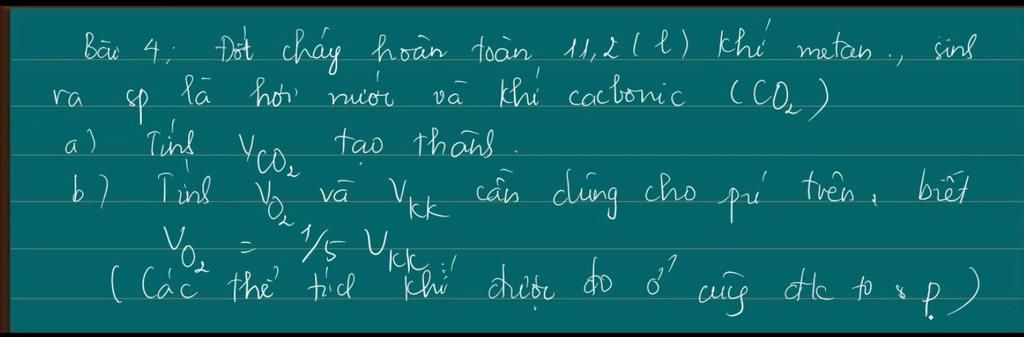 Bài 4: Đốt cháy hoàn toàn 11,2 (l) khí metan., sinh
ra sp là hơi nước và khí cacbonic (CO₂)
a) Tính V_CO₂ tạo thành.
b) Tính V_O₂ và V_KK cần dùng cho pứ trên, biết
V_O₂ = 1/5 V_KK.
(Các thể tích khí được đo ở cùng đk to & p.)